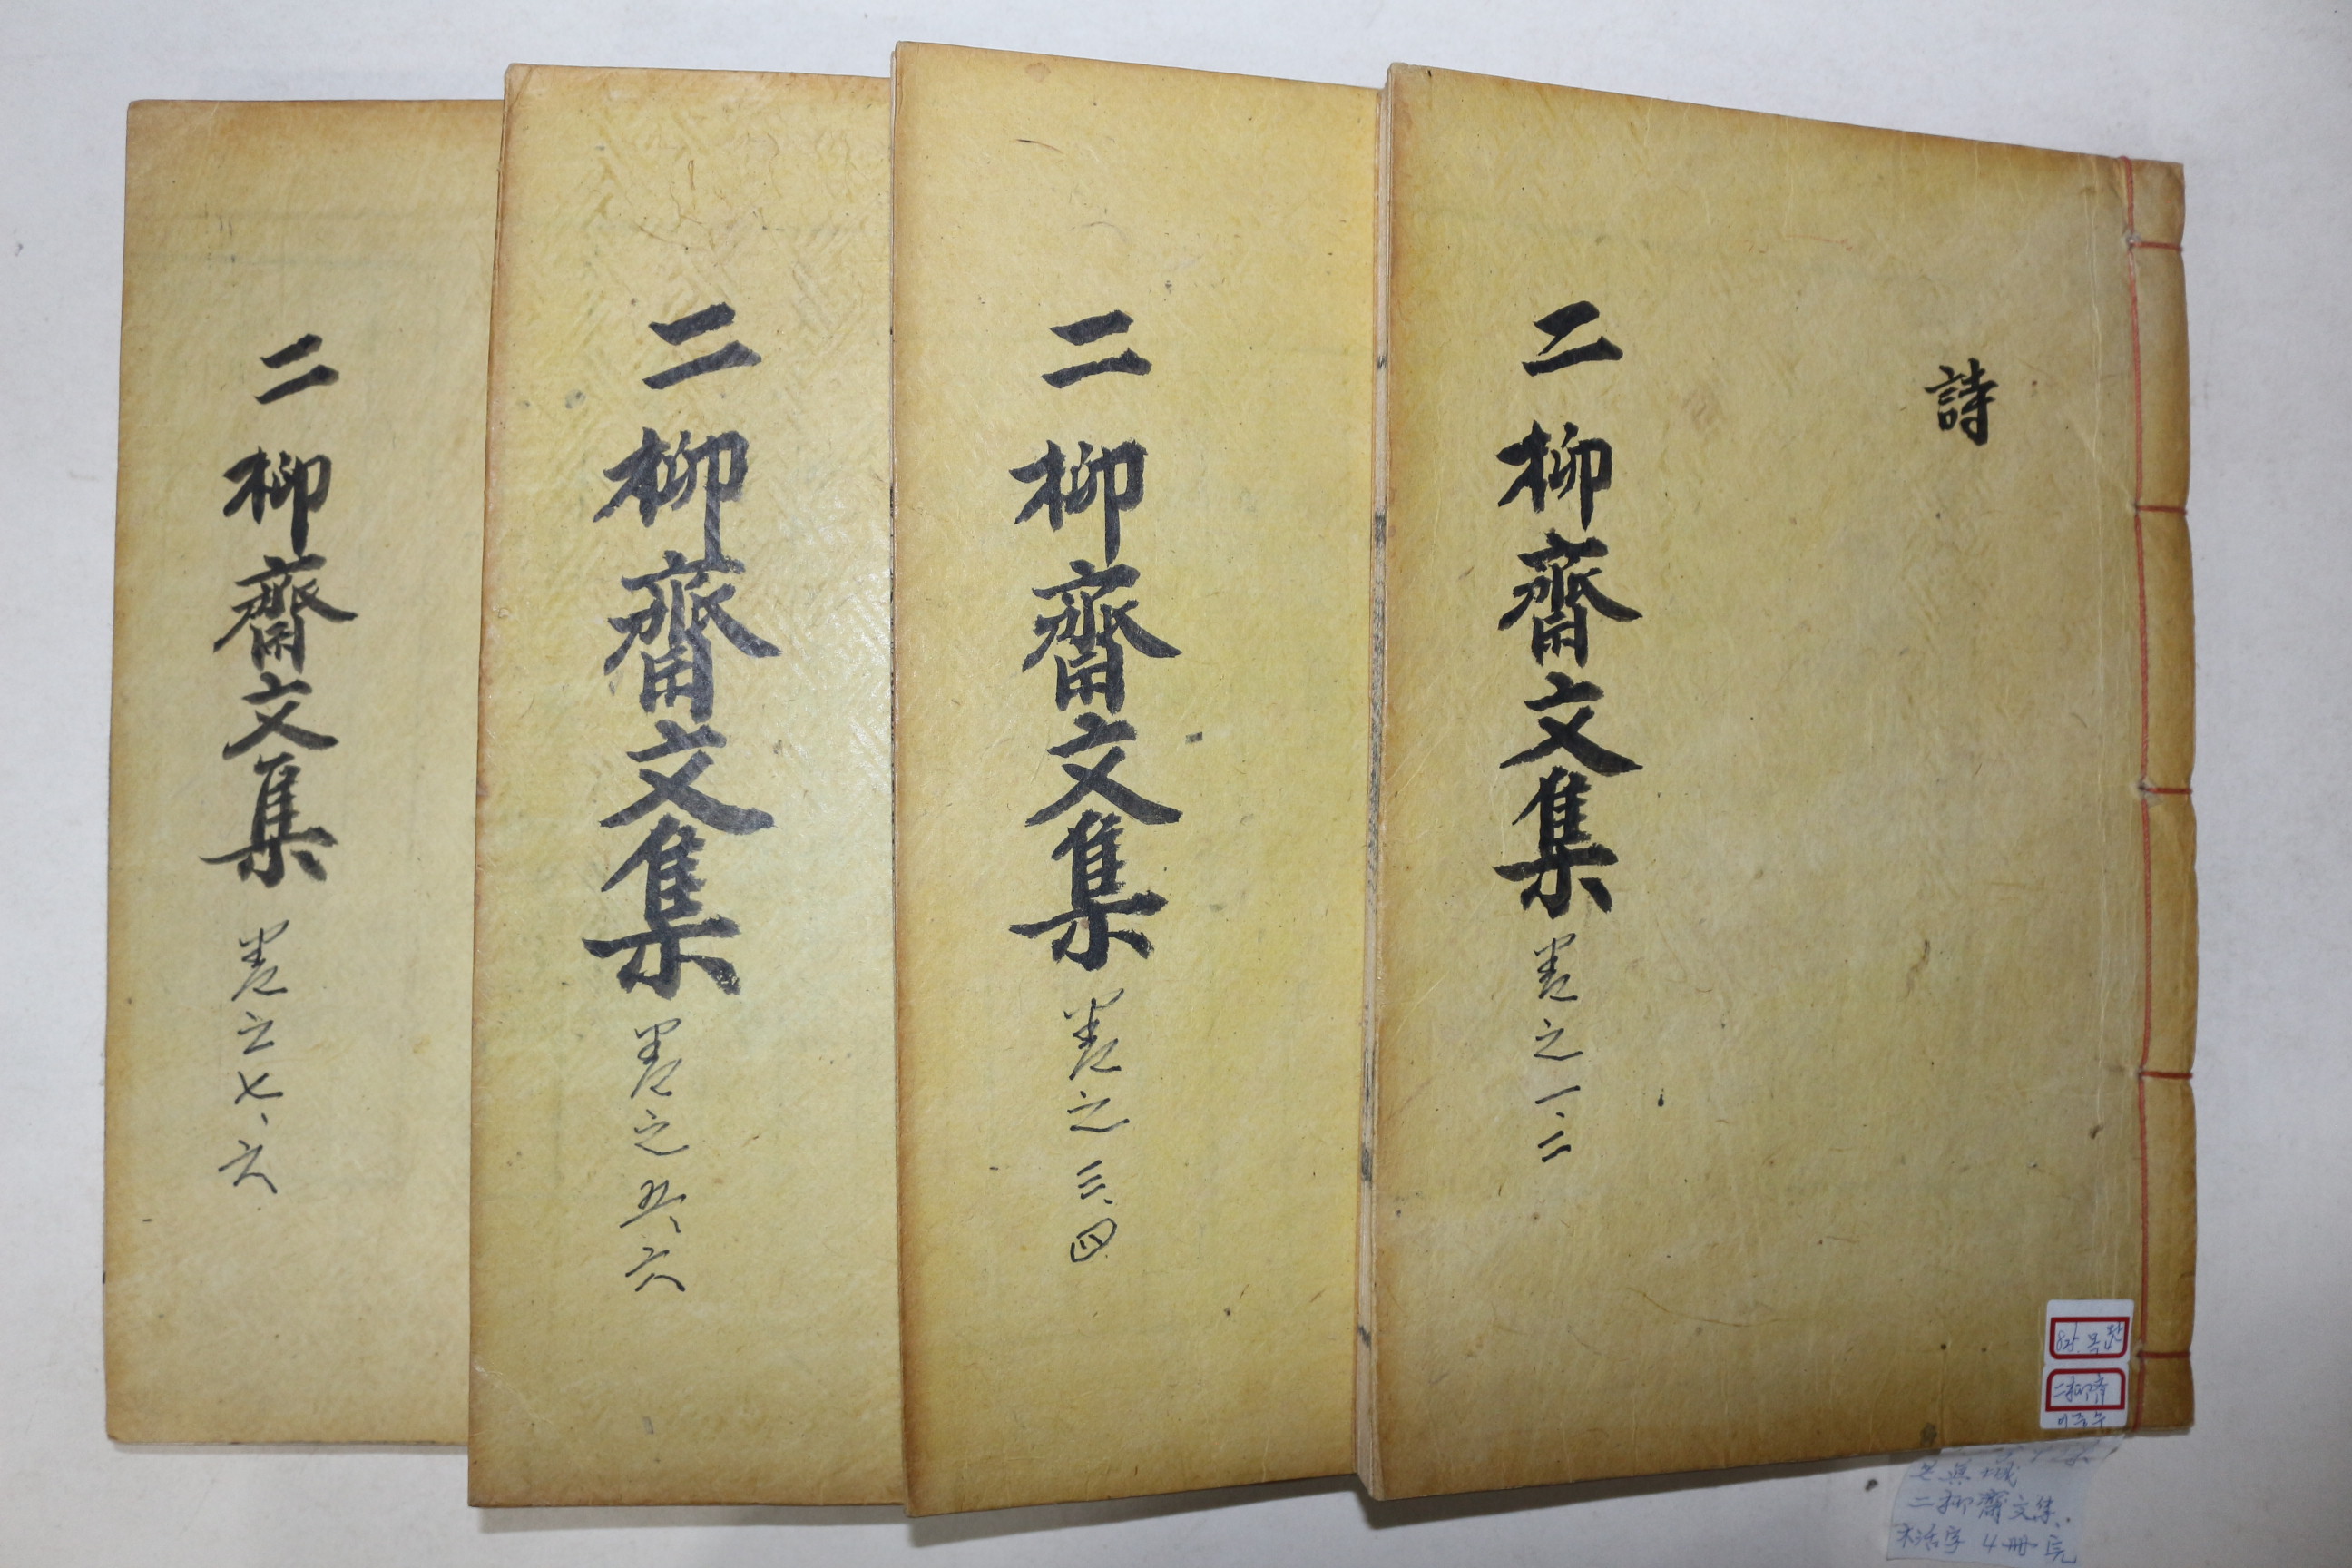 詩
二柳齋文集 卷之一、二
二柳齋文集 卷之三、四
二柳齋文集 卷之五、六
二柳齋文集 卷之七、六
825.목활
二柳齋
二柳齋文集.
木活字 4冊 完